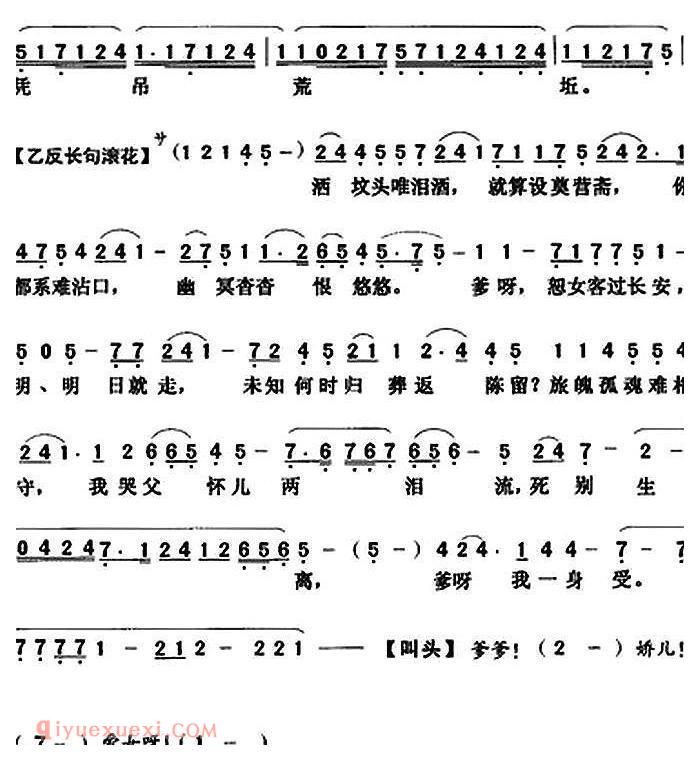 5 1 7 1 2 4 | 1·1 7 1 2 4 | 1 1 0 2 1 7 5 7 1 2 4 1 2 4 | 1 1 2 1 7 5
凭 吊 荒 坵。
【乙反长句滚花】サ (1 2 1 4 5 －) 2 4 4 5 5 7 2 4 1 7 1 1 7 5 2 4 2·1
洒 坟头唯泪洒，就算设奠营斋，你
4 7 5 4 2 4 1 － 2 7 5 1 1·2 6 5 4 5·7 5 － 1 1 － 7 1 7 7 5 1 －
都系难沾口，幽 冥杳杳 恨 悠悠。爹呀，恕女客过长安，
5 0 5 － 7 7 2 4 1 － 7 2 4 5 2 1 1 2·4 4 5 1 1 4 5 5 4
明、明 日就走，未知何时归 葬返 陈留？旅魄孤魂难相
2 4 1·1 2 6 6 5 4 5 － 7·6 7 6 7 6 5 6 － 5 2 4 7 － 2 －
守，我哭父 怀儿两 泪 流，死别 生
0 4 2 4 7·1 2 4 1 2 6 5 6 5 － (5 －) 4 2 4·1 4 4 － 7 － 7
离，爹呀 我一身 受。
7 7 7 7 1 － 2 1 2 － 2 2 1 —— 【叫头】爹爹！(2 －) 娇儿！
qiyuexuexi.COM
(7 －) 女呀！(1 －)